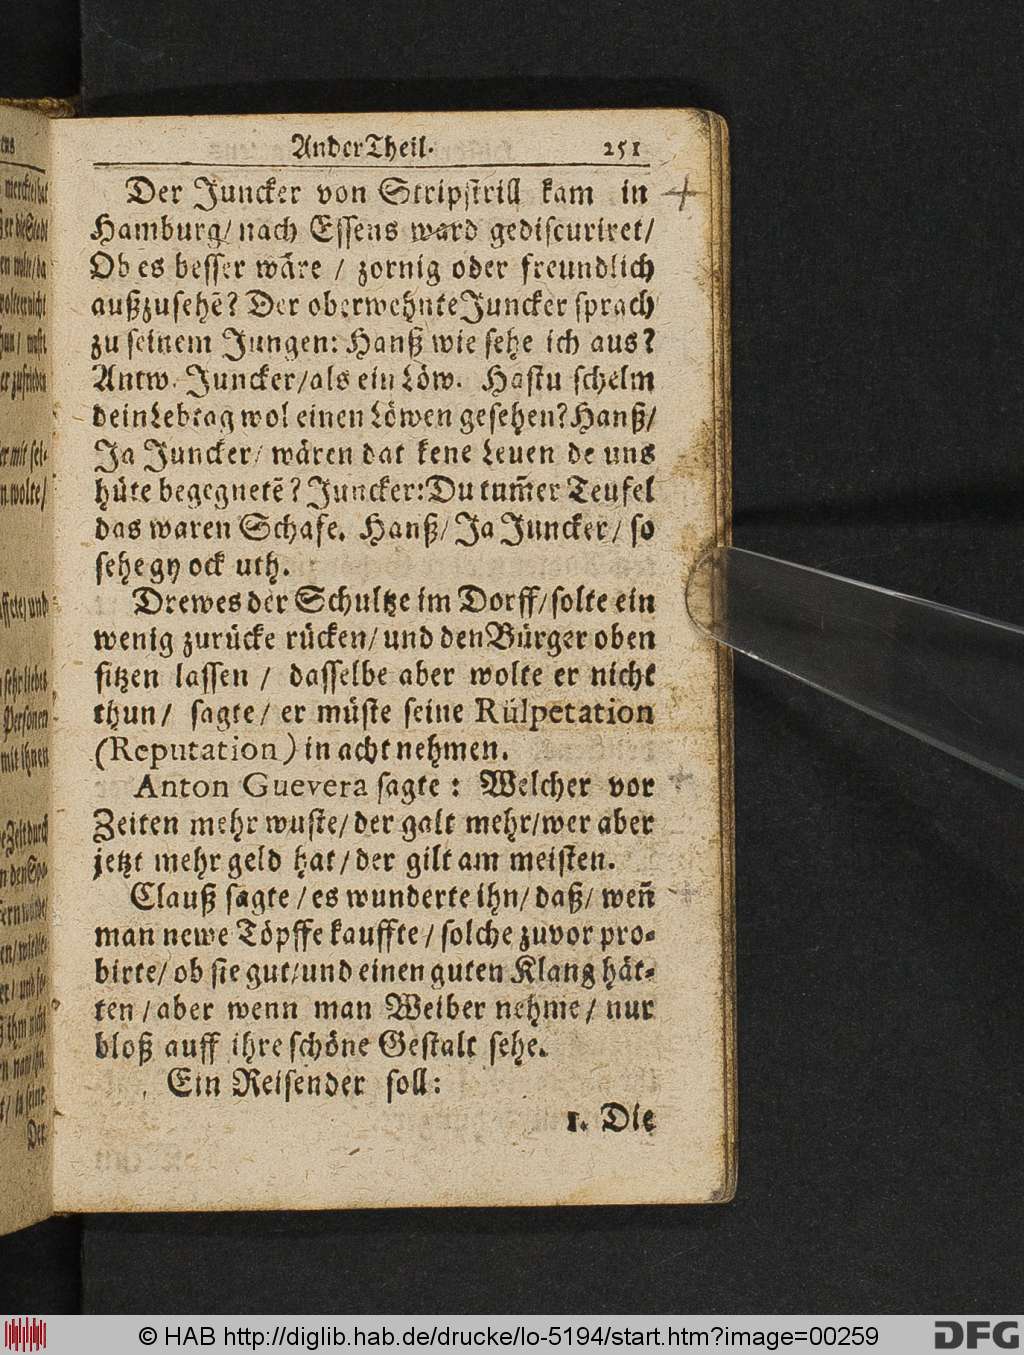 Ander Theil. 251
Der Juncker von Stripstrill kam in
Hamburg/ nach Essens ward gediscuriret/
Ob es besser wäre / zornig oder freundlich
außzusehẽ? Der oberwehnte Juncker sprach
zu seinem Jungen: Hanß wie sehe ich aus?
Antw. Juncker/ als ein Löw. Hastu schelm
dein Lebtag wol einen Löwen gesehen? Hanß/
Ja Juncker/ wären dat kene Leuen de uns
hüte begegnetẽ? Juncker: Du tum̃er Teufel
das waren Schafe. Hanß/ Ja Juncker/ so
sehe gy ock uth.
Drewes der Schultze im Dorff/ solte ein
wenig zurücke rücken/ und den Bürger oben
sitzen lassen / dasselbe aber wolte er nicht
thun/ sagte/ er müste seine Rülpetation
(Reputation) in acht nehmen.
Anton Guevera sagte: Welcher vor
Zeiten mehr wuste/ der galt mehr/ wer aber
jetzt mehr geld hat/ der gilt am meisten.
Clauß sagte / es wunderte ihn/ daß/ weñ
man newe Töpffe kauffte/ solche zuvor pro-
birte/ ob sie gut/ und einen guten Klang hät-
ten / aber wenn man Weiber nehme/ nur
bloß auff ihre schöne Gestalt sehe.
Ein Reisender soll:
1. Die
© HAB http://diglib.hab.de/drucke/lo-5194/start.htm?image=00259
DFG